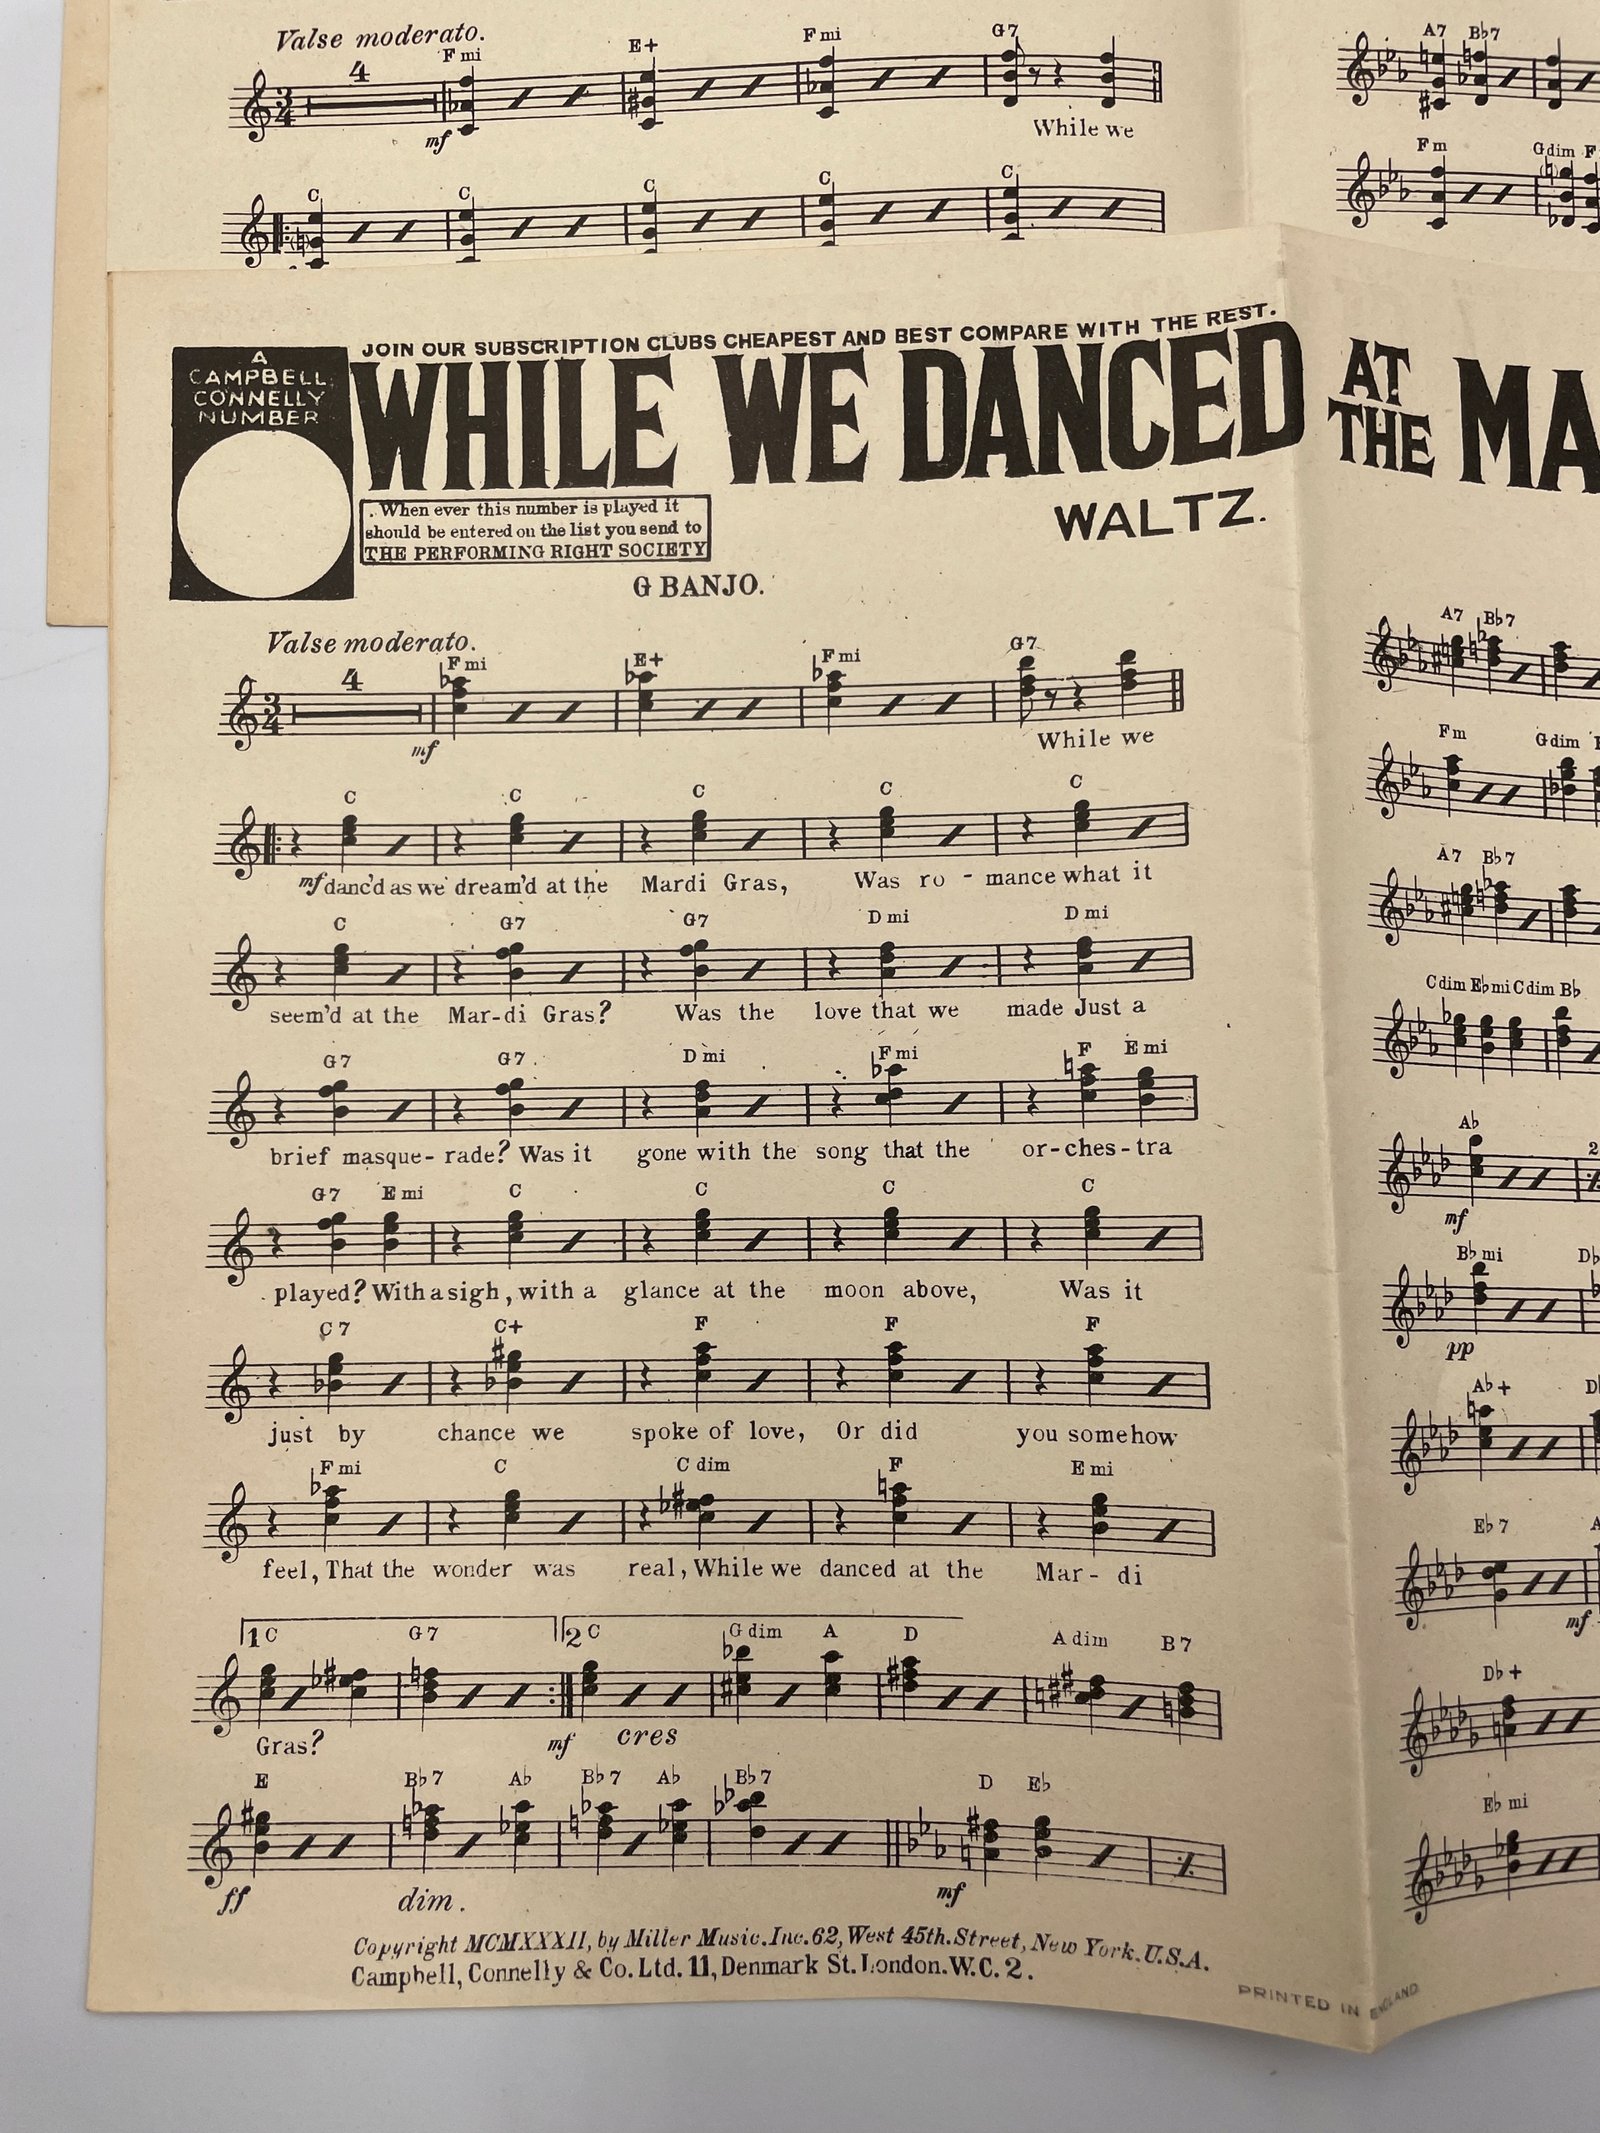 Valse moderato.
4
F mi E+ F mi G7
mf
While we
C C C C C
A7 B♭7
F m G dim F
A
CAMPBELL
CONNELLY
NUMBER
JOIN OUR SUBSCRIPTION CLUBS CHEAPEST AND BEST COMPARE WITH THE REST.
WHILE WE DANCED AT THE MA
WALTZ.
. When ever this number is played it
should be entered on the list you send to
THE PERFORMING RIGHT SOCIETY
G BANJO.
Valse moderato.
4
F mi E+ F mi G7
mf
While we
C C C C C
mf danc'd as we dream'd at the Mardi Gras, Was ro - mance what it
C G7 G7 D mi D mi
seem'd at the Mar-di Gras? Was the love that we made Just a
G7 G7 D mi F mi F E mi
brief masque- rade? Was it gone with the song that the or-ches-tra
G7 E mi C C C C
played? With a sigh, with a glance at the moon above, Was it
C 7 C+ F F F
just by chance we spoke of love, Or did you somehow
F mi C C dim F E mi
feel, That the wonder was real, While we danced at the Mar- di
1 C G7 2 C G dim A D A dim B 7
Gras? mf cres
E B♭7 A♭ B♭7 A♭ B♭7 D E♭
ff dim. mf
Copyright MCMXXXII, by Miller Music. Inc. 62, West 45th. Street, New York. U.S.A.
Campbell, Connelly & Co. Ltd. 11, Denmark St. London. W.C. 2.
PRINTED IN ENGLAND
A7 B♭7
F m G dim
A7 B♭7
C dim E♭mi C dim B♭
A♭
2
mf
B♭ mi D♭
pp
A♭+
E♭ 7
mf
D♭+
E♭ mi